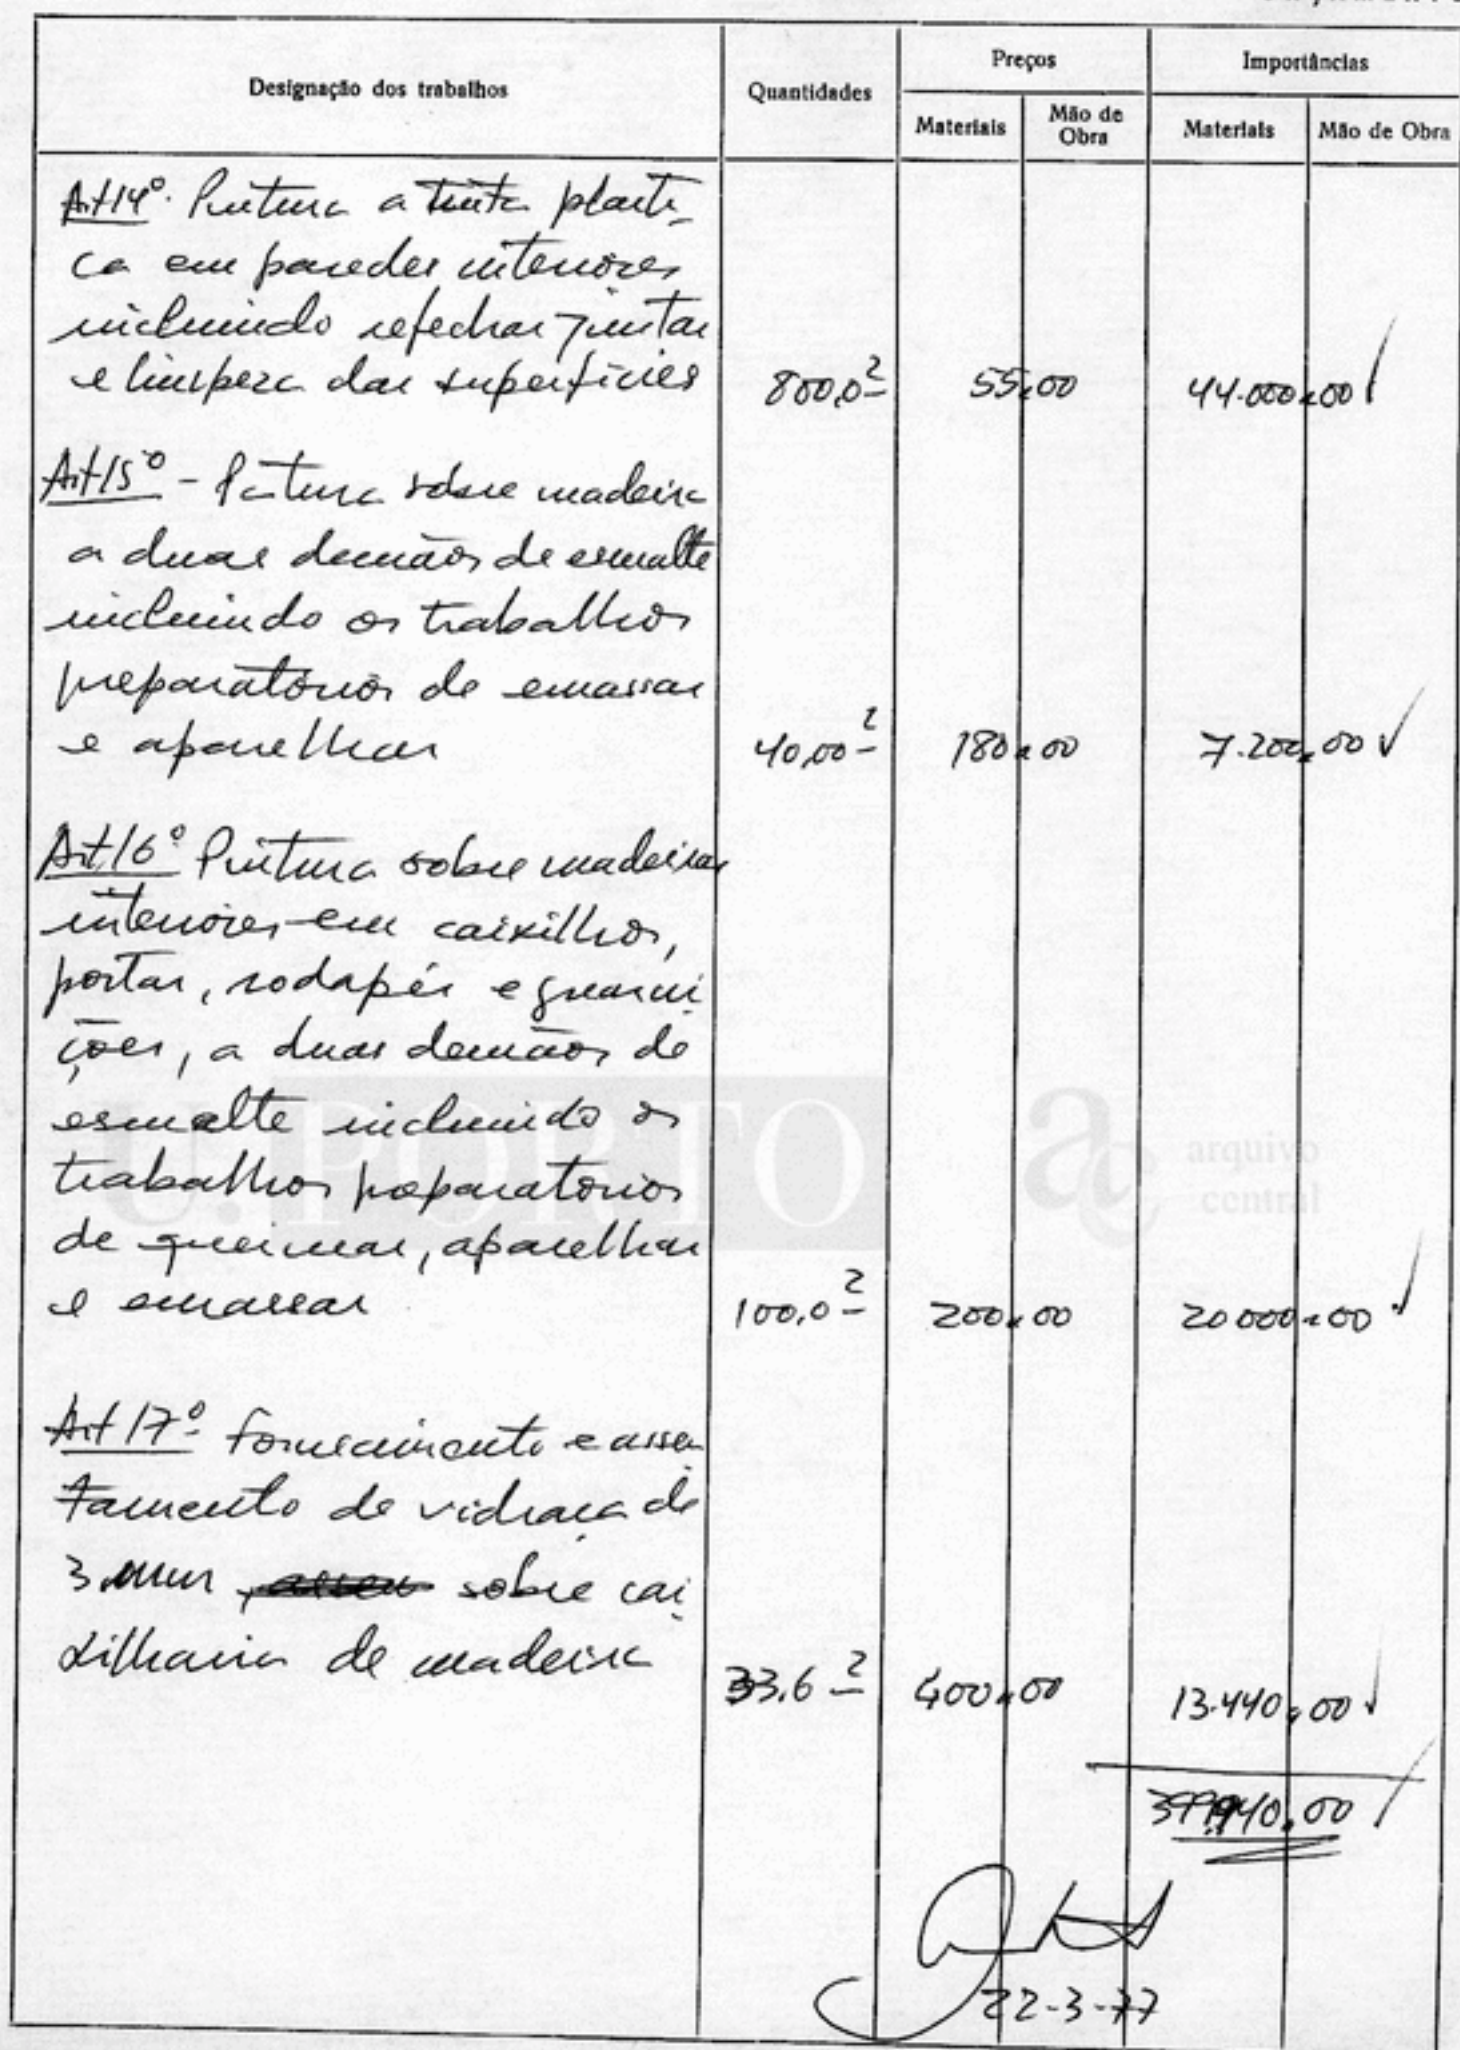 Designação dos trabalhos Quantidades Preços Importâncias
Materiais Mão de Obra Materiais Mão de Obra
Art 14º. Pintura a tinta plásti-
ca em paredes interiores
incluindo refechar juntas
e limpeza das superfícies 800,0 2 55,00 44.000,00
Art 15º - Pintura sobre madeira
a duas demãos de esmalte
incluindo os trabalhos
preparatórios de emassar
e aparelhar 40,00 2 180,00 7.200,00
Art 16º Pintura sobre madeiras
interiores em caixilhos,
portas, rodapés e guarni-
ções, a duas demãos de
esmalte incluindo os
trabalhos preparatorios
de queimar, aparelhar
e emassar 100,0 2 200,00 20000,00
Art 17º Fornecimento e assen-
tamento de vidraça de
3 mm sobre cai-
xilharia de madeira 33,6 2 400,00 13.440,00
22-3-77
U.PORTO ac arquivo
central